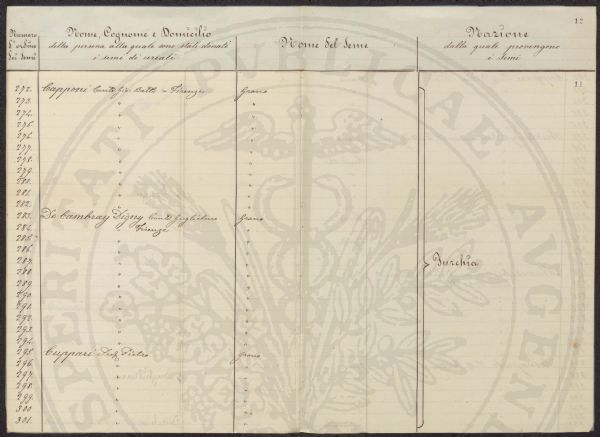 12
Numero d'ordine dei Semi
Nome, Cognome e Domicilio
della persona alla quale sono stati donati
i semi di cereali
Nome del Seme
Nazione
dalla quale provengono
i Semi
11
272. Capponi Conte Gio: Batta - Firenze Grano
273. " "
274. " "
275. " "
276. " "
277. " "
278. " "
279. " "
280. " "
281. " "
282. " "
283. De Cambray Digny Conte Guglielmo Grano
284. " Firenze "
285. " "
286. " "
287. " "
Turchia
288. " "
289. " "
290. " "
291. " "
292. " "
293. " "
294. " "
295. Cuppari Pietro Grano
296. " "
297. " "
298. " "
299. " "
300 " "
301. " "
PROSPERITATI PUBLICAE AUGENDAE